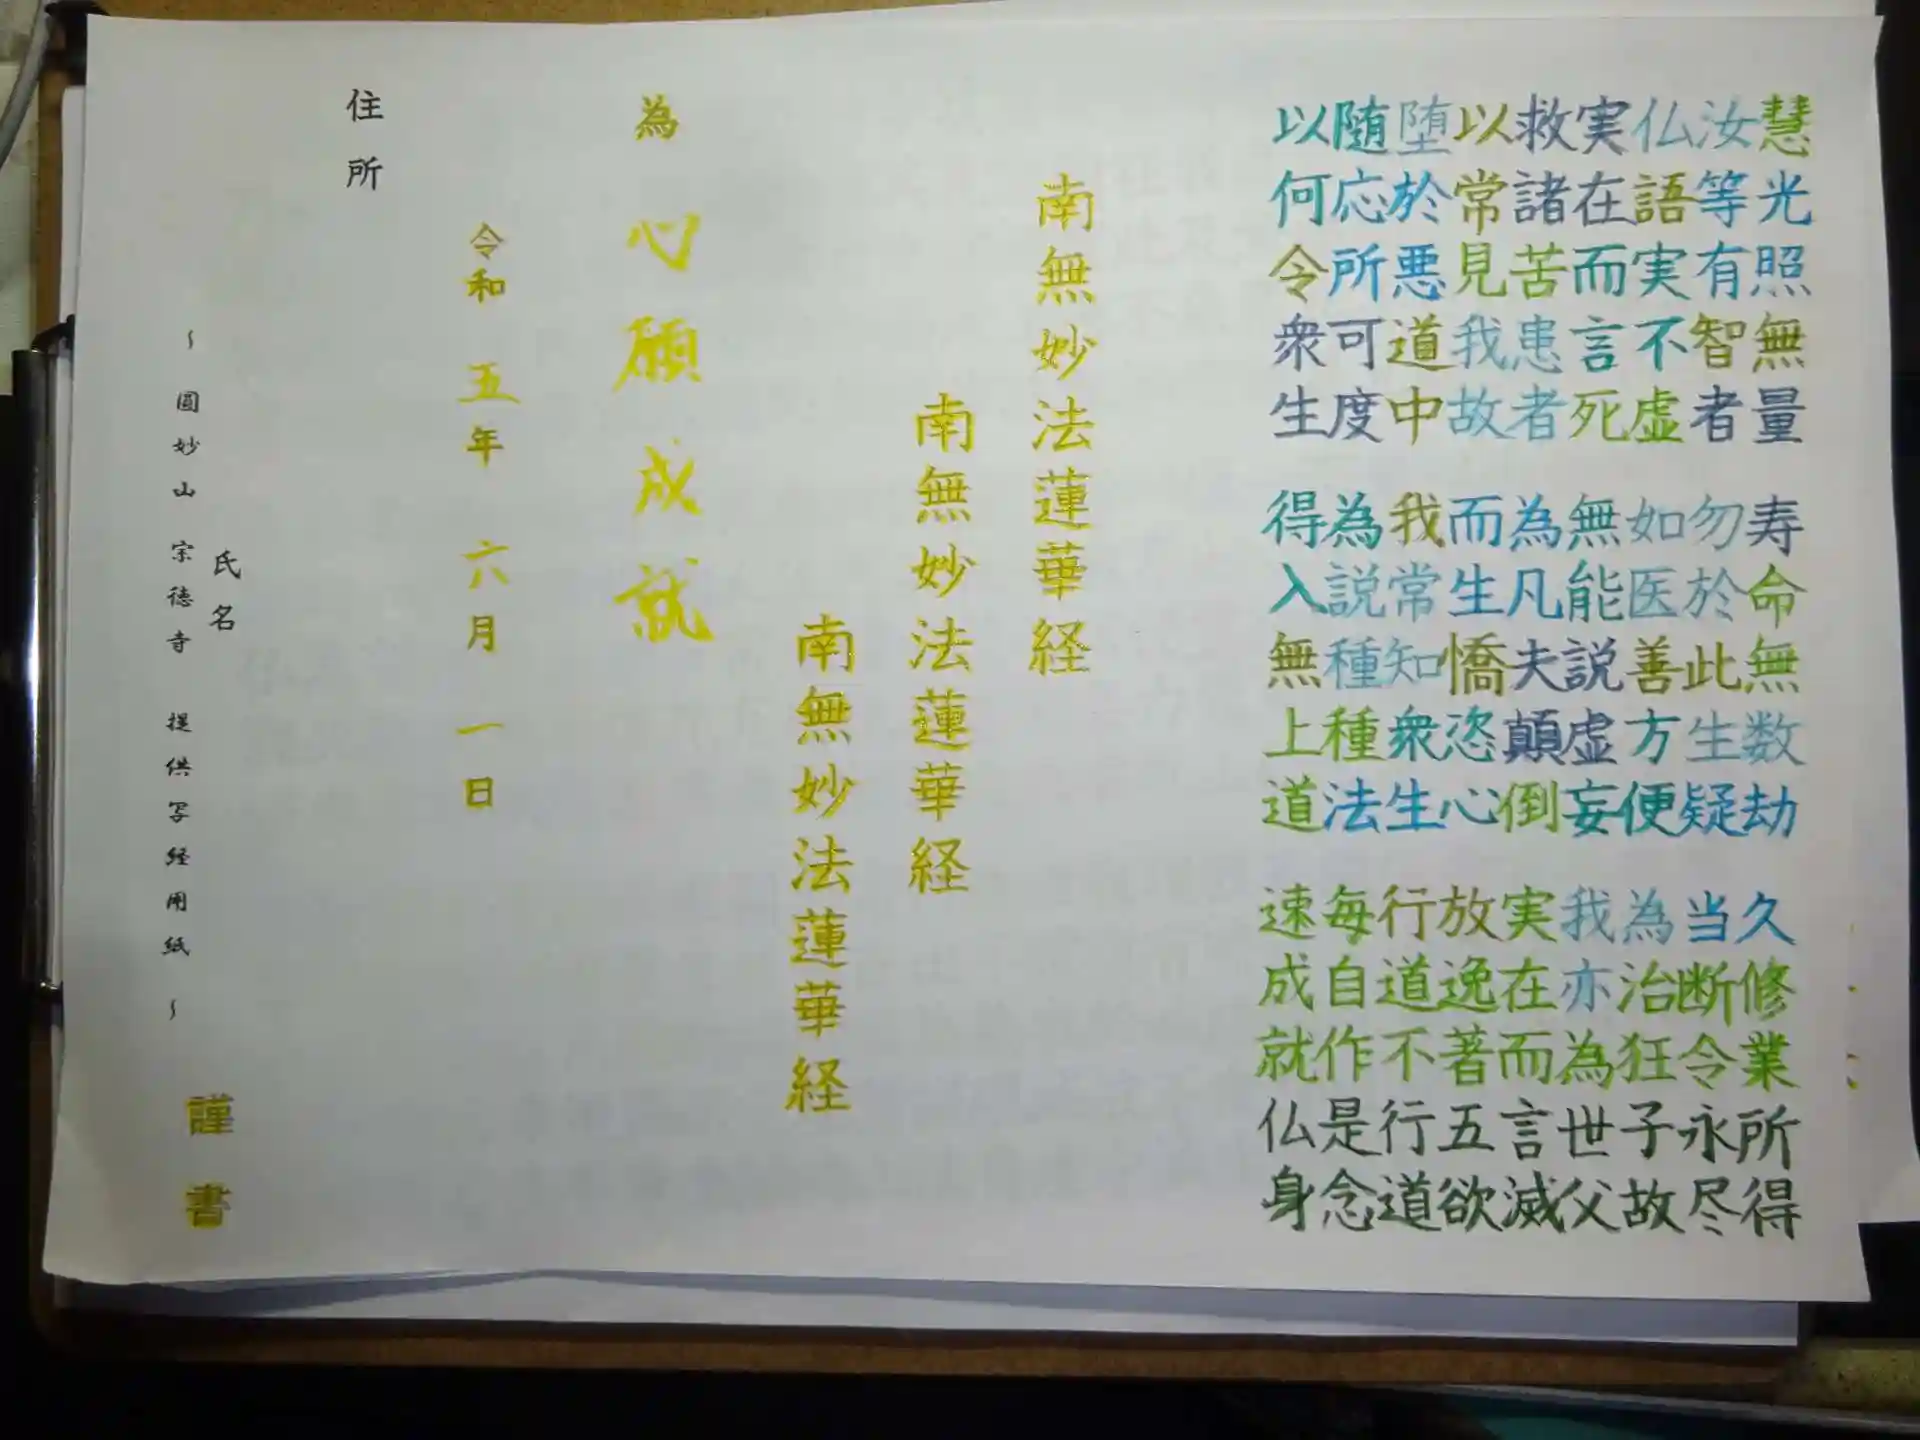 慧光照無量 寿命無数劫 久修業所得
汝等有智者 勿於此生疑 当断令永尽
仏語実不虚 如医善方便 為治狂子故
実在而言死 無能説虚妄 我亦為世父
救諸苦患者 為凡夫顛倒 実在而言滅
以常見我故 而生憍恣心 放逸著五欲
堕於悪道中 我常知衆生 行道不行道
随応所可度 為説種種法 毎自作是念
以何令衆生 得入無上道 速成就仏身
南無妙法蓮華経
南無妙法蓮華経
南無妙法蓮華経
為 心願成就
令和 五年 六月 一日
住所
氏名 謹書
～ 圓妙山 宗徳寺 提供写経用紙 ～